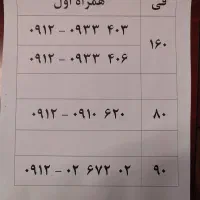 فی همراه اول
۱۶۰ ۰۹۱۲ – ۰۹۳۳ ۴۰۳
۰۹۱۲ – ۰۹۳۳ ۴۰۶
۸۰ ۰۹۱۲ – ۰۹۱۰ ۶۲۰
۹۰ ۰۹۱۲ – ۰۲ ۶۷۲ ۰۲